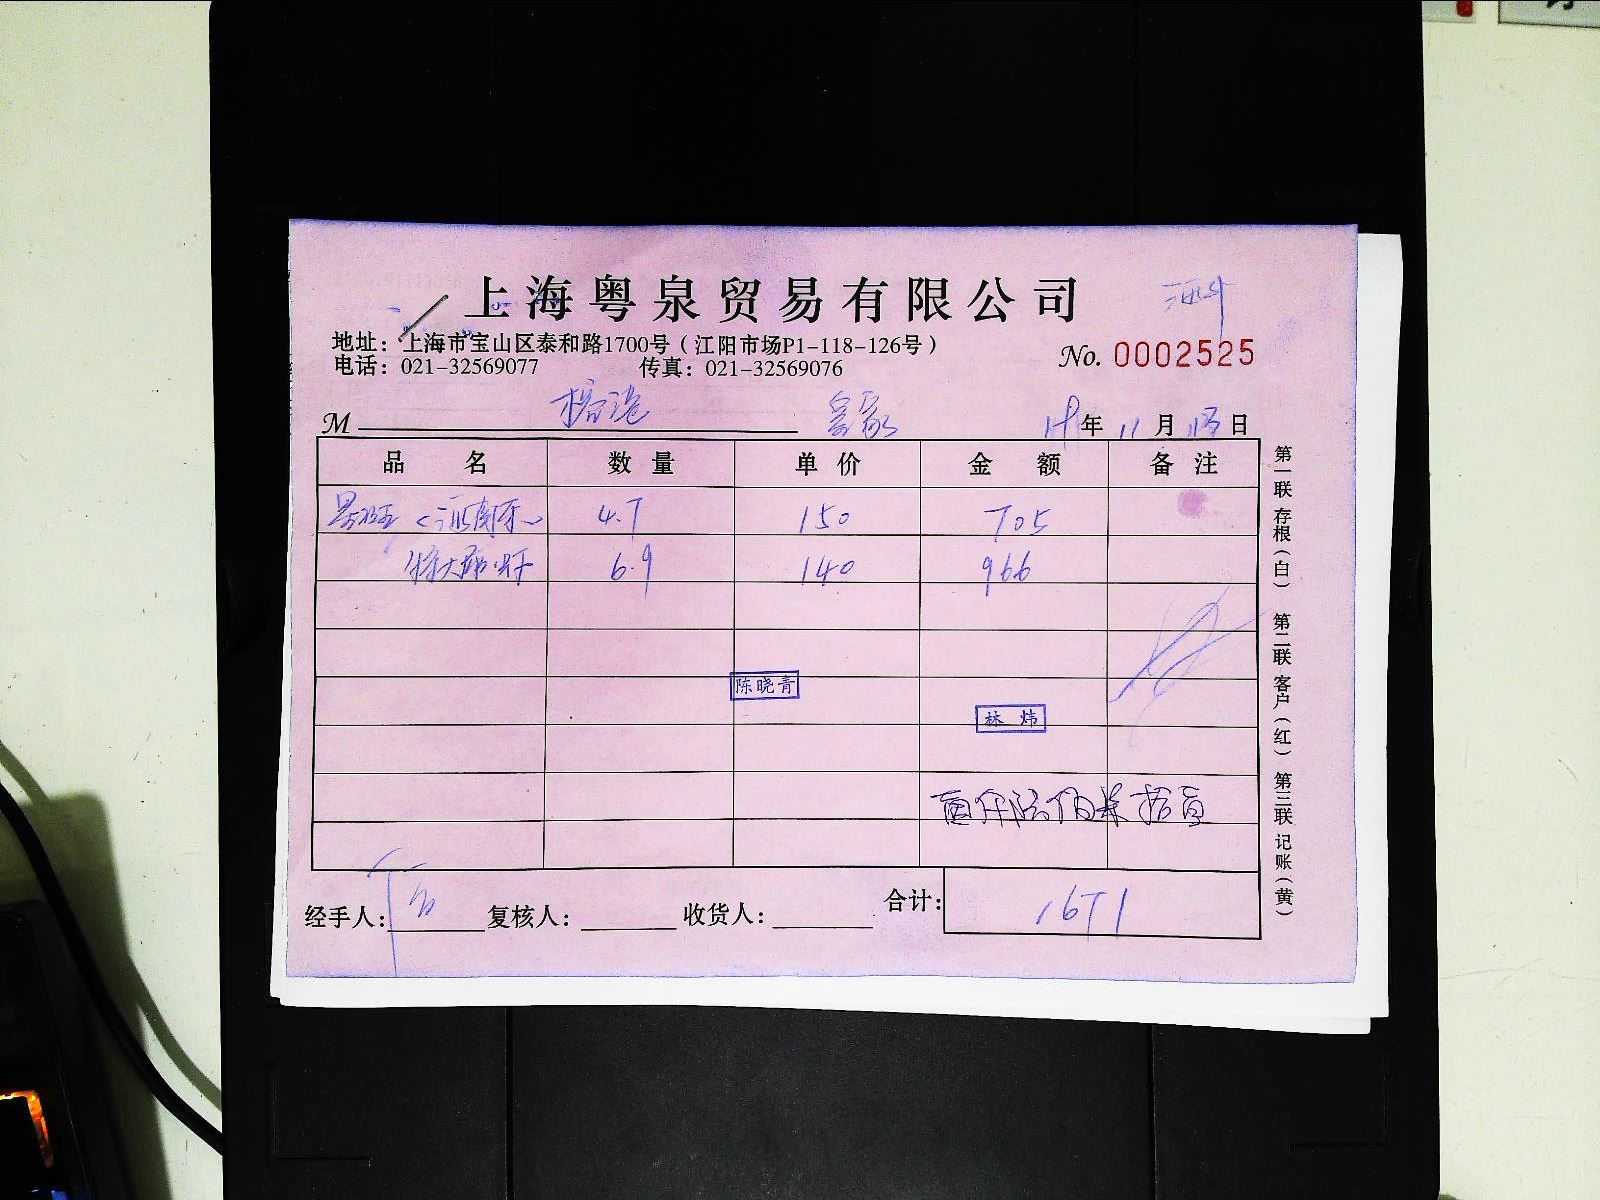 上海粤泉贸易有限公司
地址：上海市宝山区泰和路1700号（江阳市场P1-118-126号）
电话：021-32569077 传真：021-32569076
No. 0002525
M 年 11 月 日
品名 数量 单价 金额 备注
4.7 150 705
特大 6.9 140 966
陈晓青
林炜
壹仟陆佰柒拾壹
经手人： 复核人： 收货人： 合计： 1671
第一联 存根（白） 第二联 客户（红） 第三联 记账（黄）